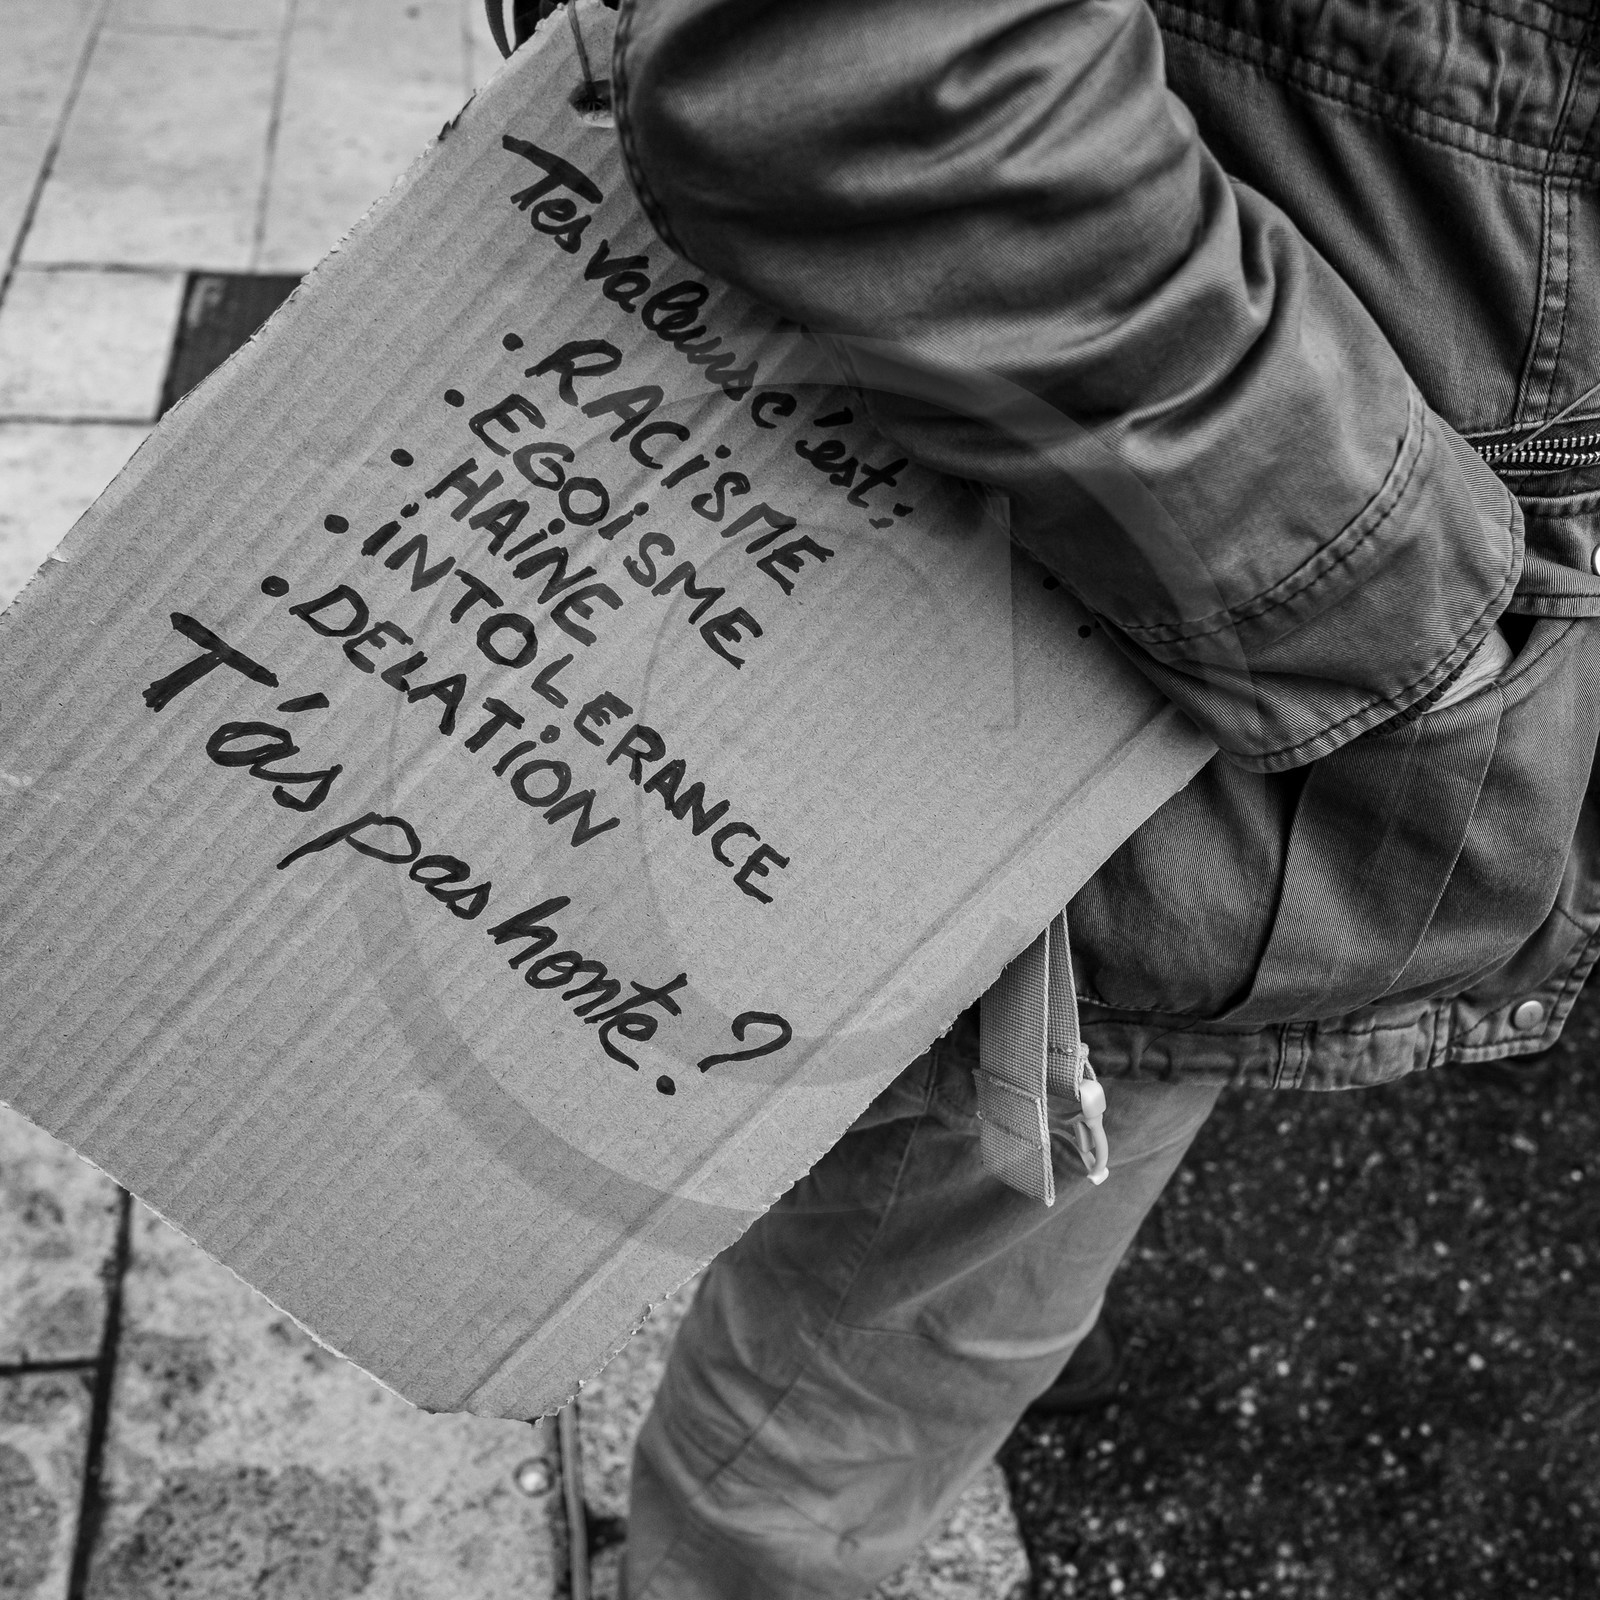 Tes valeurs c'est:
• RACiSME
• EGOiSME
• HAiNE
• iNTOLERANCE
• DELATiON
T'as pas honte.?